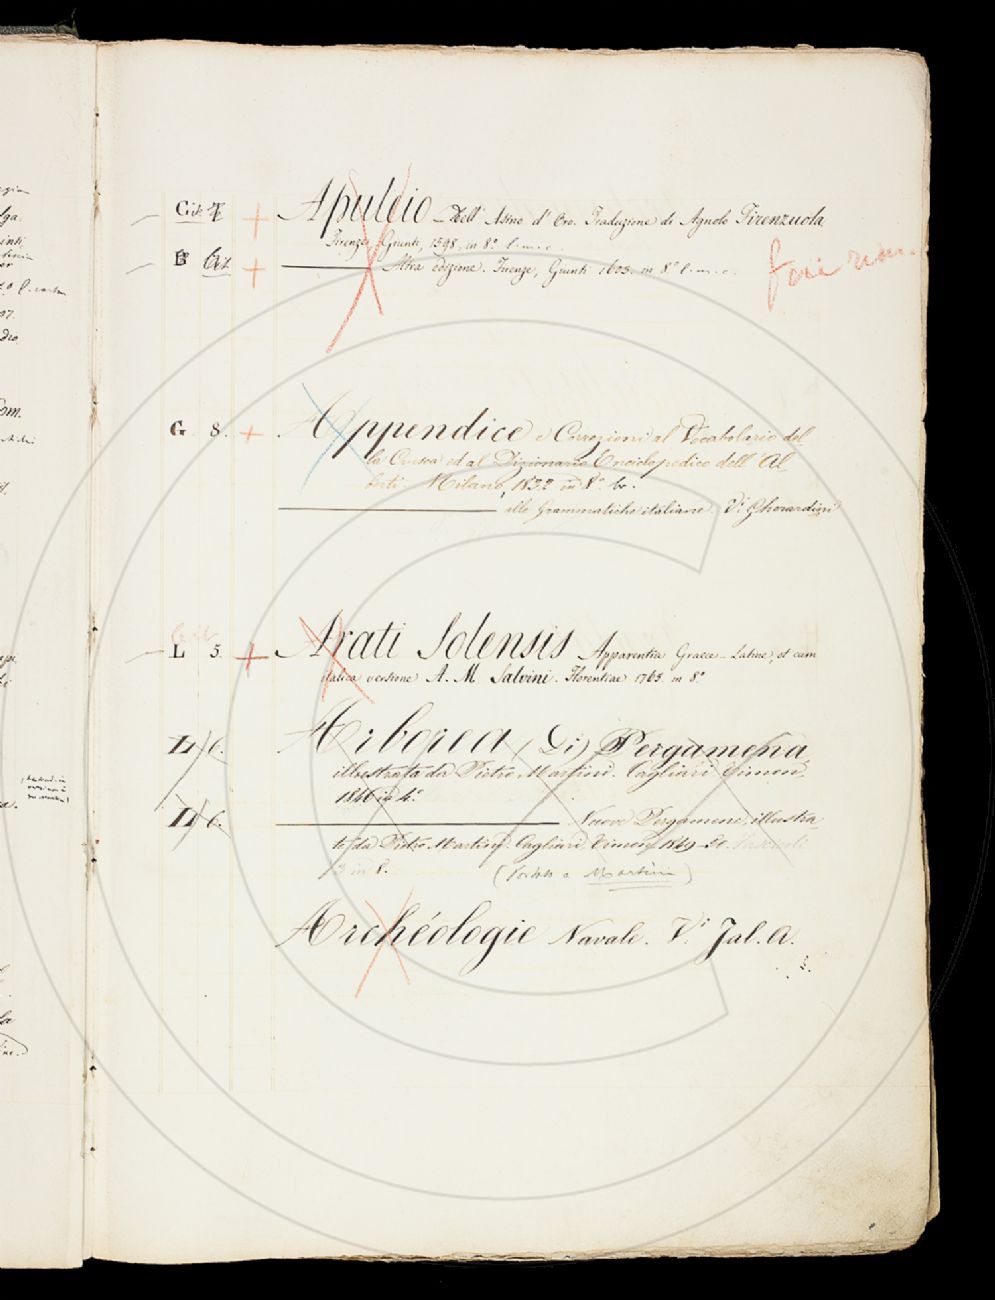 Apuleio - Dell' Asino d' Oro. Traduzione di Agnolo Firenzuola
Firenze, Giunti, 1598, in 8.°
B Altra edizione. Firenze, Giunti 1603. in 8.°
G. 8. Appendice e Correzioni al Vocabolario del
la Crusca ed al Dizionario Enciclopedico dell' Al
berti. Milano, 1832 in 8.° br.
alle Grammatiche italiane. V. Gherardini
L 5. Arati Solensis Apparentia Graece - Latine, et cum
italica versione A. M. Salvini. Florentiae 1765. in 8.°
L 6. Arborea (Di) Pergamena
illustrata da Pietro Martini. Cagliari Timon.
1846 in 4.°
L 6. Nuove Pergamene illustra
te da Pietro Martini. Cagliari Timon 1849-50. Fascicoli
3 in 8.
(Portato a Martini)
Archéologie Navale. V. Jal. A.